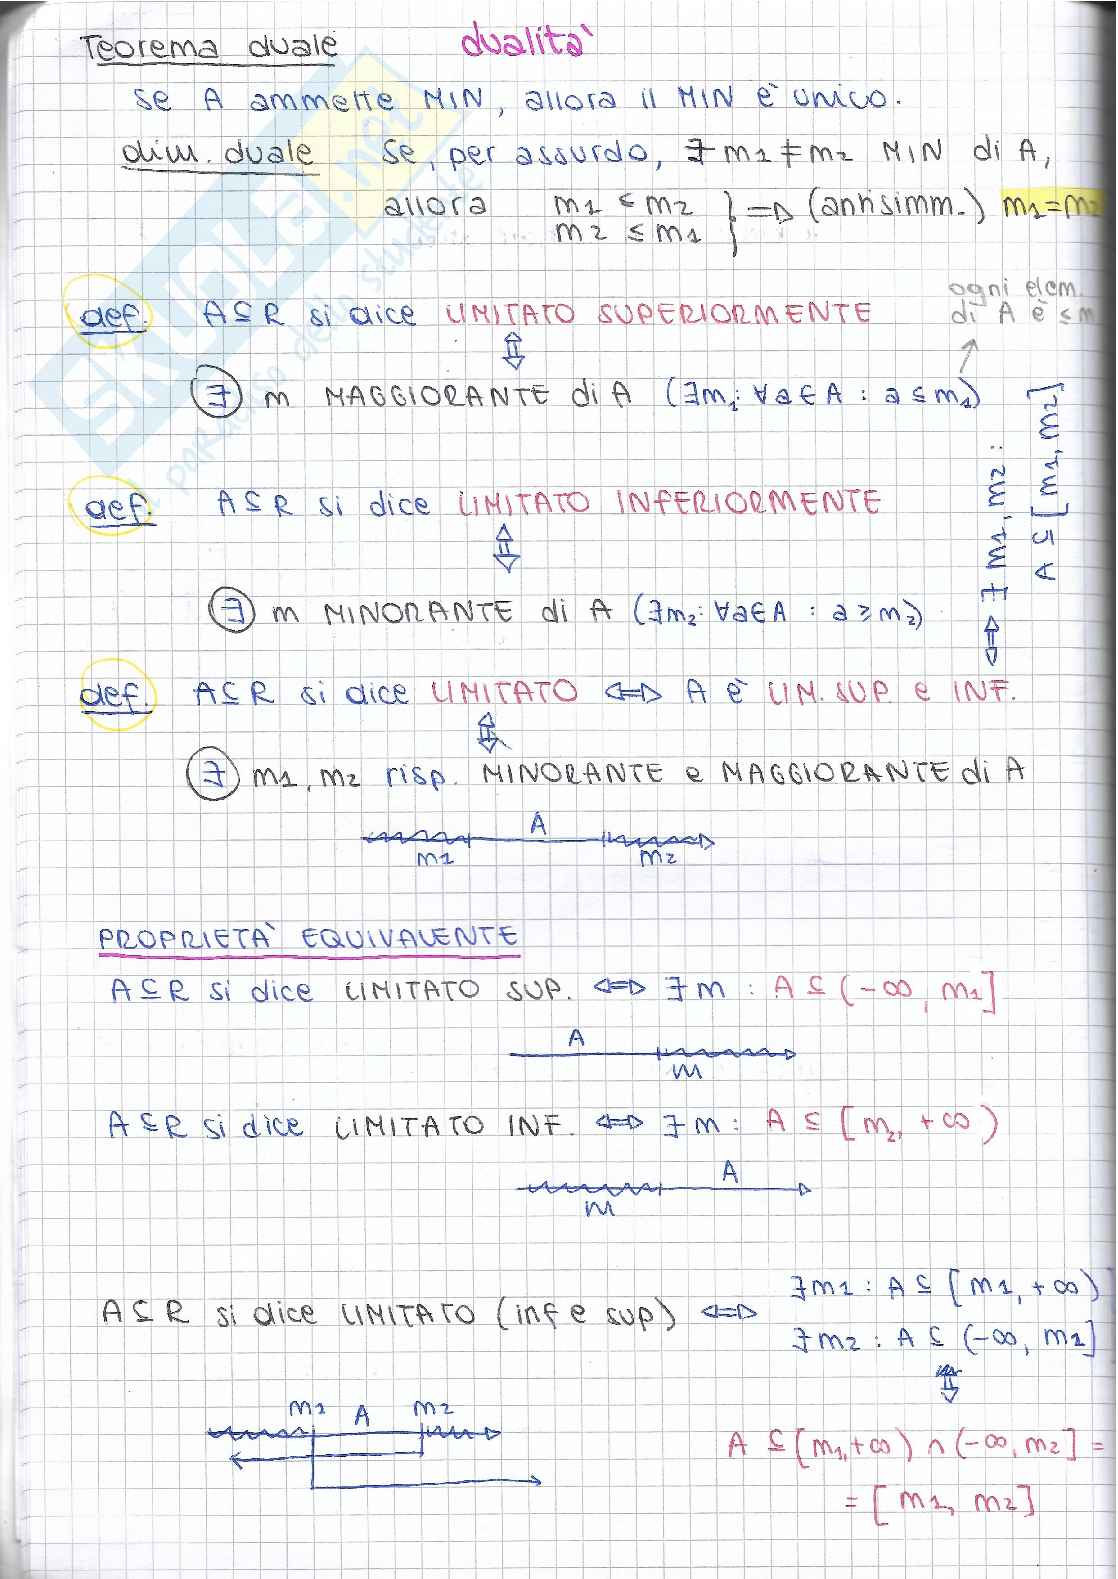 Teorema duale dualità
se A ammette MIN, allora il MIN è unico.
dim. duale Se, per assurdo, ∃ m1 ≠ m2 MIN di A,
allora m1 ≤ m2
m2 ≤ m1 } ⇒ (antisimm.) m1 = m2
ogni elem.
di A è ≤ m
def. A ⊆ R si dice LIMITATO SUPERIORMENTE
⇕
∃ m MAGGIORANTE di A (∃m1: ∀a∈A : a ≤ m1)
def. A ⊆ R si dice LIMITATO INFERIORMENTE
⇕
∃ m MINORANTE di A (∃m2: ∀a∈A : a ≥ m2)
⇔ ∃ m1, m2 :
A ⊆ [m1, m2]
def. A ⊆ R si dice LIMITATO ⇔ A è LIM. SUP. e INF.
⇕
∃ m1, m2 risp. MINORANTE e MAGGIORANTE di A
A
m1 m2
PROPRIETÀ EQUIVALENTE
A ⊆ R si dice LIMITATO SUP. ⇔ ∃ m : A ⊆ (-∞, m1]
A
m
A ⊆ R si dice LIMITATO INF. ⇔ ∃ m : A ⊆ [m2, +∞)
A
m
∃ m1 : A ⊆ [m1, +∞)
A ⊆ R si dice LIMITATO (inf e sup) ⇔
∃ m2 : A ⊆ (-∞, m1]
⇕
m1 A m2
A ⊆ [m1, +∞) ∩ (-∞, m2] =
= [m1, m2]
SKUOLA.net
il paradiso dello studente